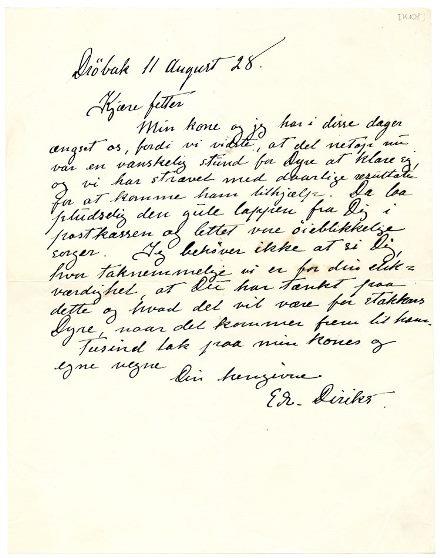 Dröbak 11 August 28.
Kjære fetter
Min kone og jeg har i disse dager
ængset os, fordi vi vidste, at det netop nu
var en vanskelig stund for Dyre at klare sig,
og vi har strævet med daarlige resultater
for at komme ham tilhjælp. Da laa
pludselig den gule lappen fra Dig i
postkassen og lettet vore öieblikkelige
sorger. Jeg behöver ikke at si Dig,
hvor taknemmelige vi er for din elsk=
værdighet at Du har tænkt paa
dette og hvad det vil være for stakkars
Dyre, naar det kommer frem til ham.
Tusind tak paa min kones og
egne vegne
Din hengivne
Edv. Diriks.